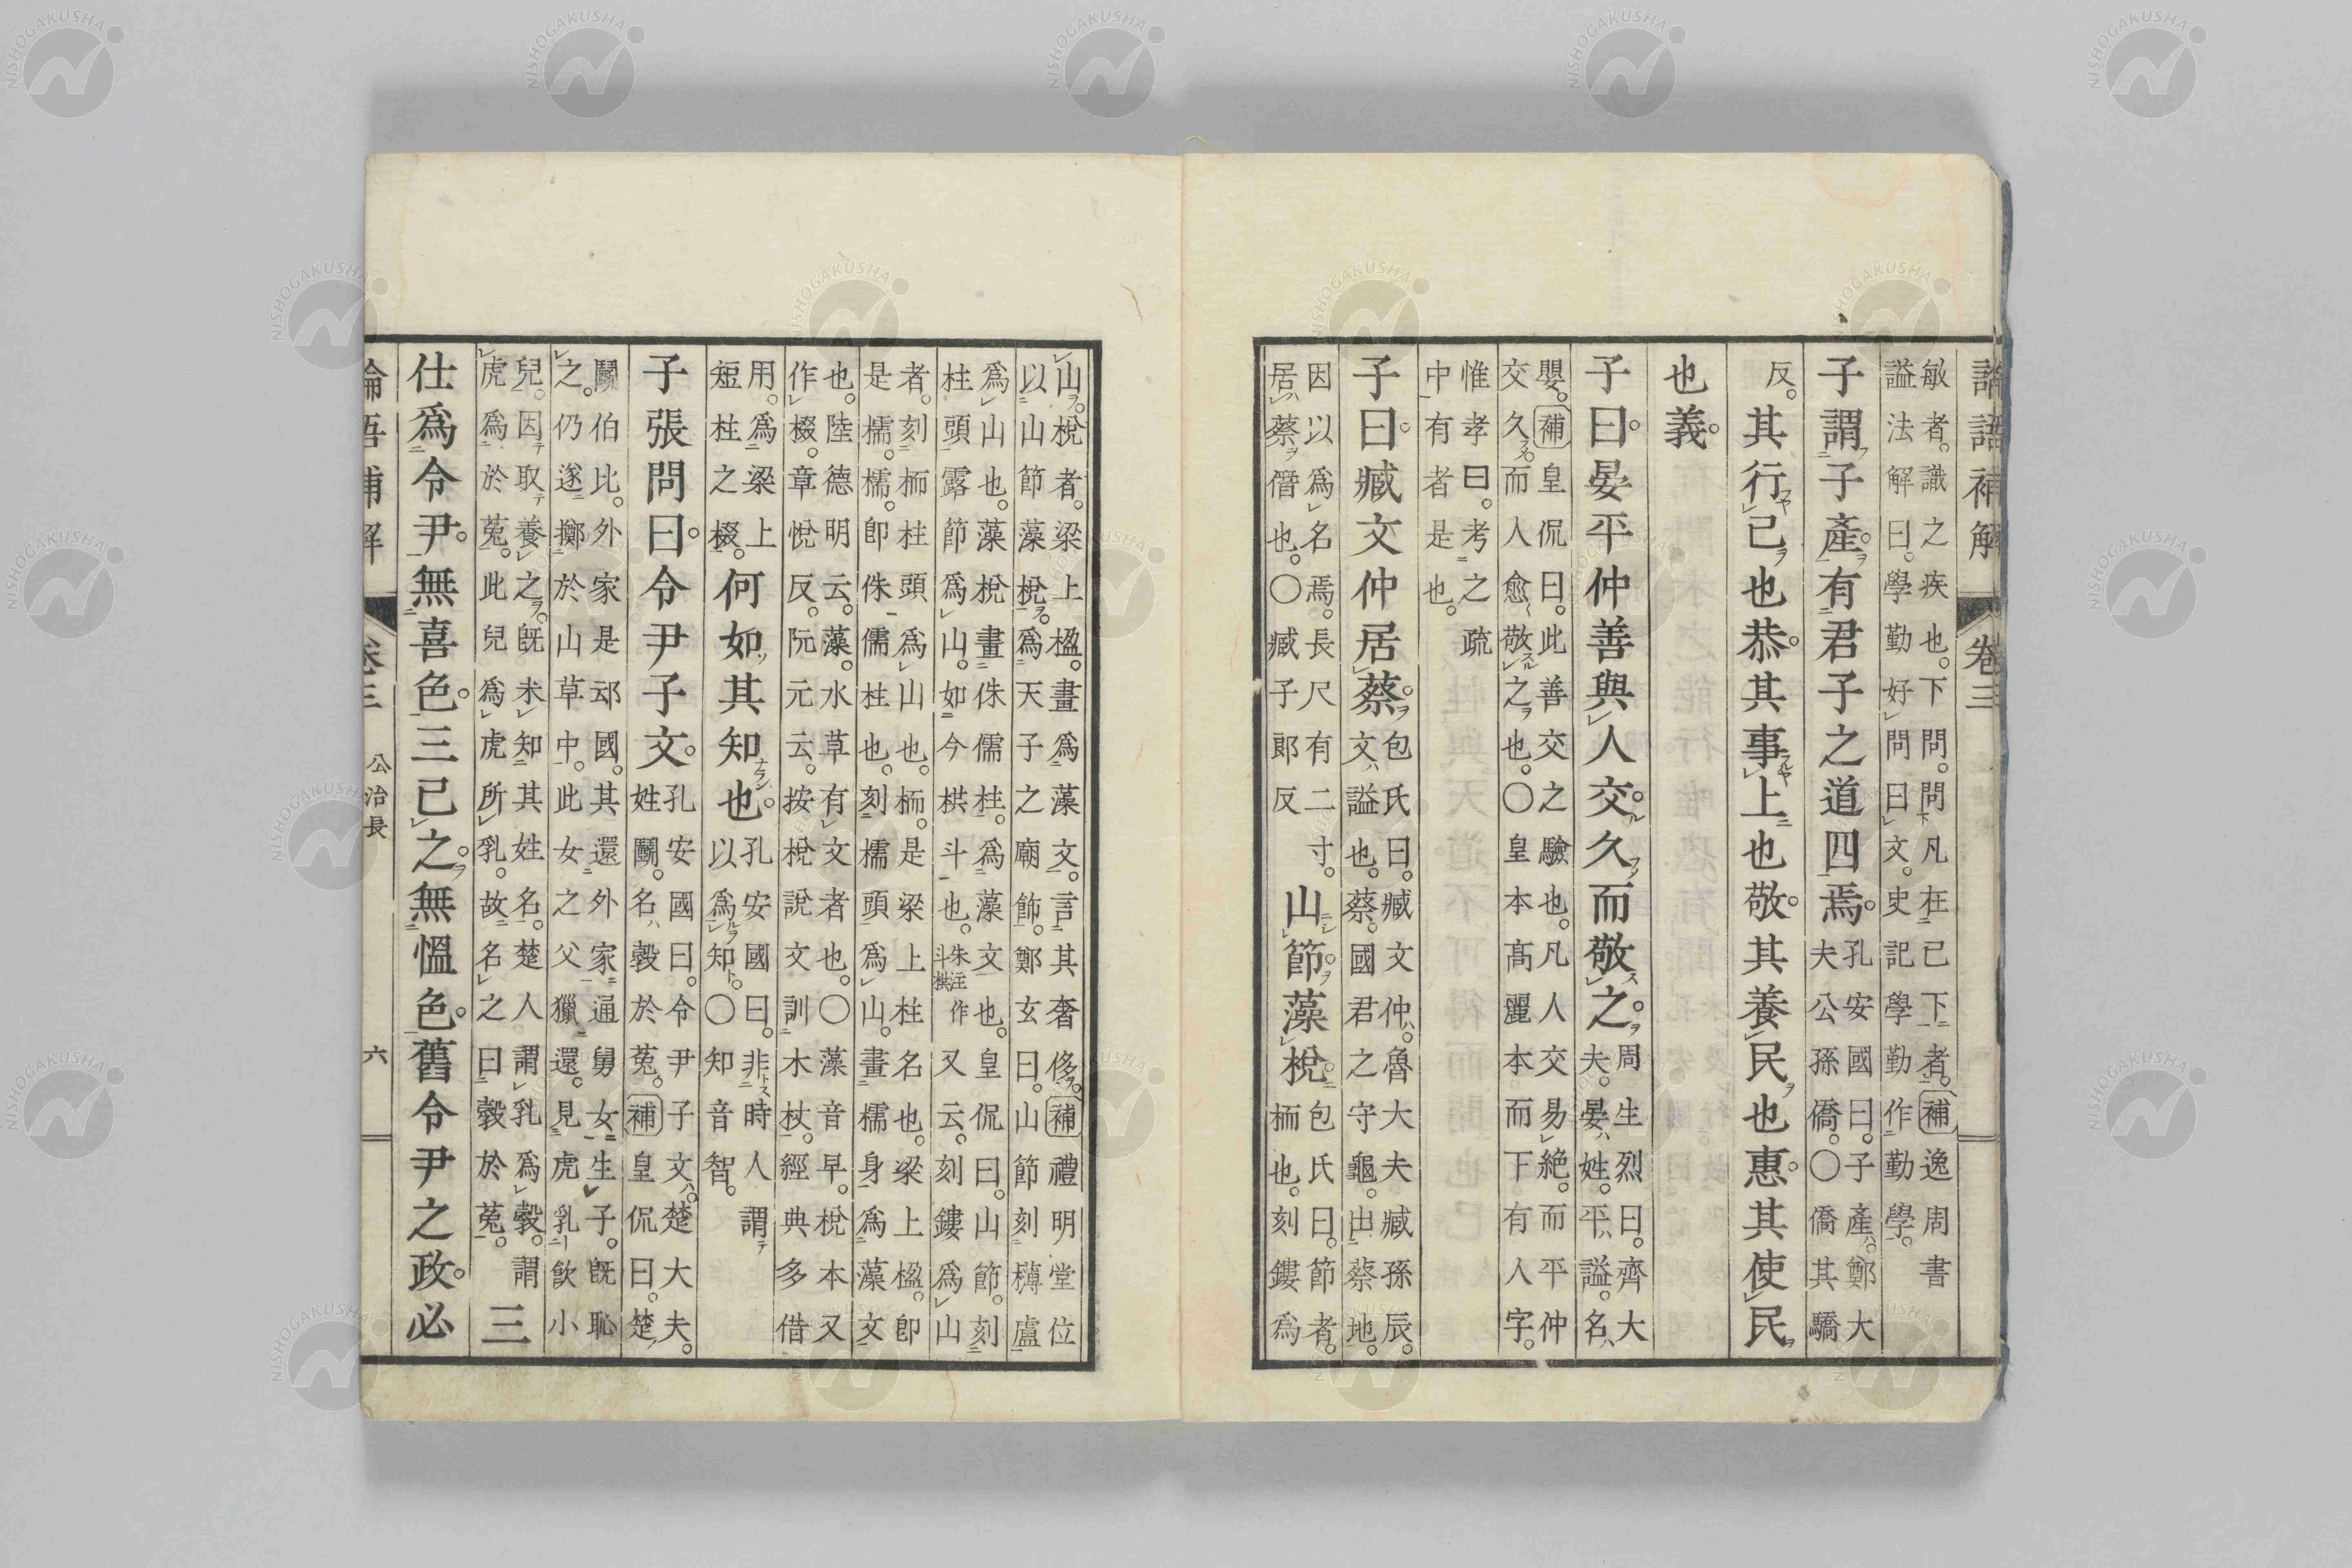 論語補解　卷三
敏者。識之疾也。下問。問凡在己下者。補逸周書
諡法解曰。學勤好問曰文。史記學勤作勤學。
子謂子產。有君子之道四焉。
孔安國曰。子產。鄭大
夫公孫僑。〇僑其驕
反。
其行己也恭。其事上也敬。其養民也惠。其使民
也義。
子曰。晏平仲善與人交。久而敬之。
周生烈曰。齊大
夫。晏姓。平諡。名
嬰。補皇侃曰。此善交之驗也。凡人交易絶。而平仲
交久而人愈敬之也。〇皇本高麗本而下有人字。
惟孝曰。考之疏
中有者是也。
子曰。臧文仲居蔡。
包氏曰。臧文仲。魯大夫臧孫辰。
文諡也。蔡。國君之守龜。出蔡地。
因以爲名焉。長尺有二寸。
居蔡僭也。〇臧子郎反
山節。藻梲。
包氏曰。節者。
栭也。刻鏤爲
山。梲者。梁上楹。畫爲藻文。言其奢侈。補禮明堂位
以山節藻梲。爲天子之廟飾。鄭玄曰。山節刻欂盧
爲山也。藻梲畫侏儒柱。爲藻文也。皇侃曰。山節。刻
柱頭露節爲山。如今栱斗也。朱注作斗栱又云。刻鏤爲山
者。刻栭柱頭爲山也。栭。是梁上柱名也。梁上楹。卽
是檽。檽。卽侏儒柱也。刻檽頭爲山。畫檽身爲藻文
也。陸德明云。藻。水草有文者也。〇藻音早。梲本又
作棳。章悅反。阮元云。按梲說文訓木杖。經典多借
用。爲梁上
短柱之棳。
何如其知也。
孔安國曰。非時人謂
以爲知。〇知音智。
子張問曰。令尹子文。
孔安國曰。令尹子文。楚大夫。
姓鬭。名穀於菟。補皇侃曰。楚
鬭伯比。外家是䢵國。其還外家通舅女生子。旣恥
之。仍遂擲於山草中。此女之父獵還。見虎乳飮小
兒。因取養之。旣未知其姓名。楚人謂乳爲穀。謂
虎爲於菟。此兒爲虎所乳。故名之曰穀於菟。
三
仕爲令尹。無喜色。三已之。無慍色。舊令尹之政。必
論語補解　卷三　公冶長　六